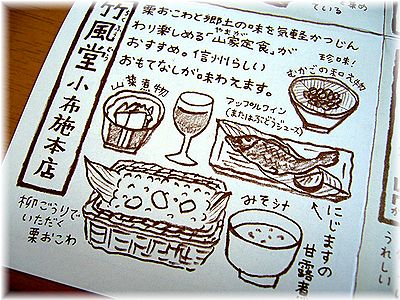 竹風堂 小布施本店
栗おこわと郷土の味を気軽かつじん
わり楽しめる「山家定食」が
やまが
おすすめ。信州らしい
おもてなしが味わえます。
珍味!
むかごの和え物
アップルワイン
(またはぶどうジュース)
山菜煮物
にじますの
甘露煮
みそ汁
柳ごうりで
いただく
栗おこわ
ている
うれしい